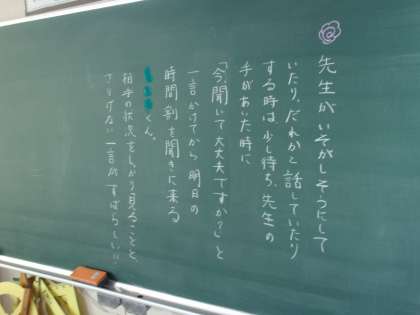 先生がいそがしそうにして
いたり、だれかと話していたり
する時は少し待ち、先生の
手があいた時に
「今、聞いて大丈夫ですか?」と
一言かけてから明日の
時間割を聞きに来る
くん。
相手の状況をしっかり見ることと、
さりげない一言がすばらしい